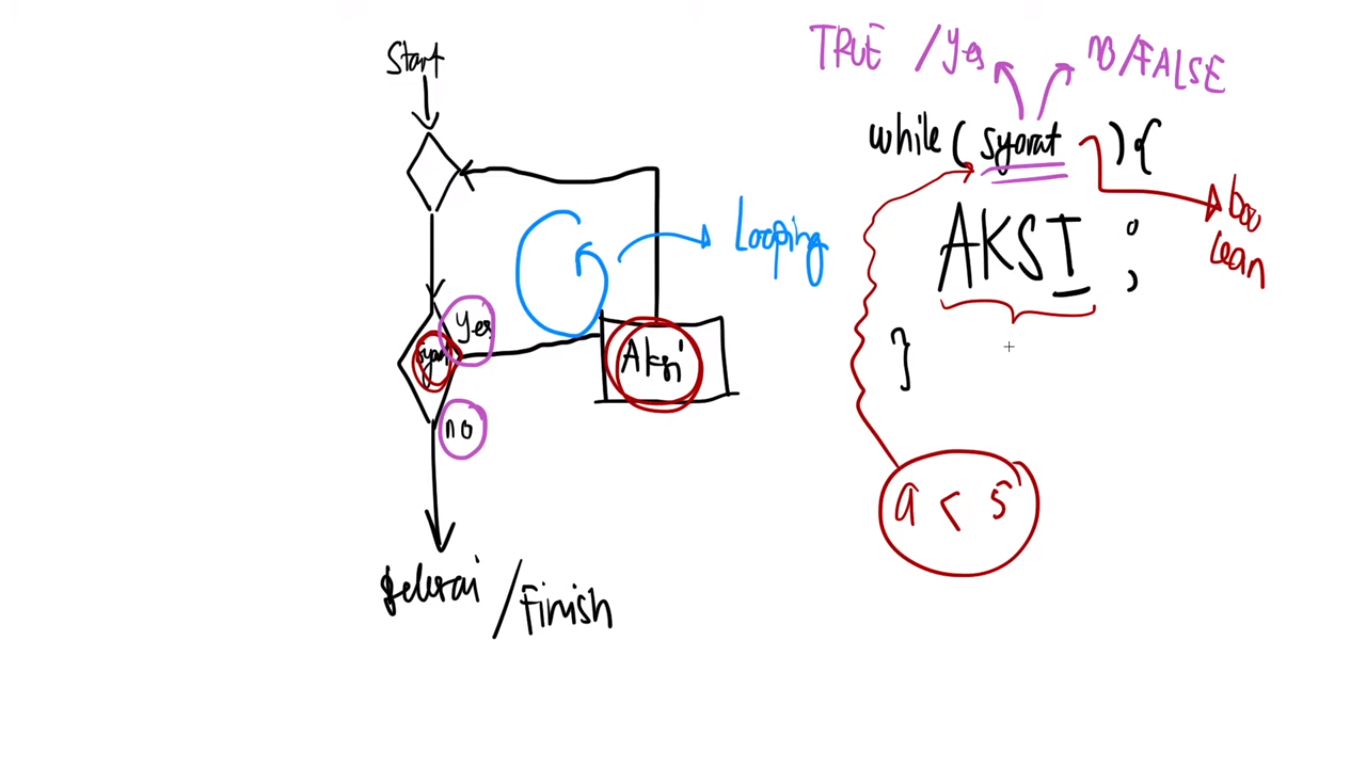 Start
Yes
syarat
no
Aksi
Looping
selesai / Finish
TRUE / Yes
no / FALSE
while ( syarat ) {
AKSI ;
}
boo
lean
a < 5